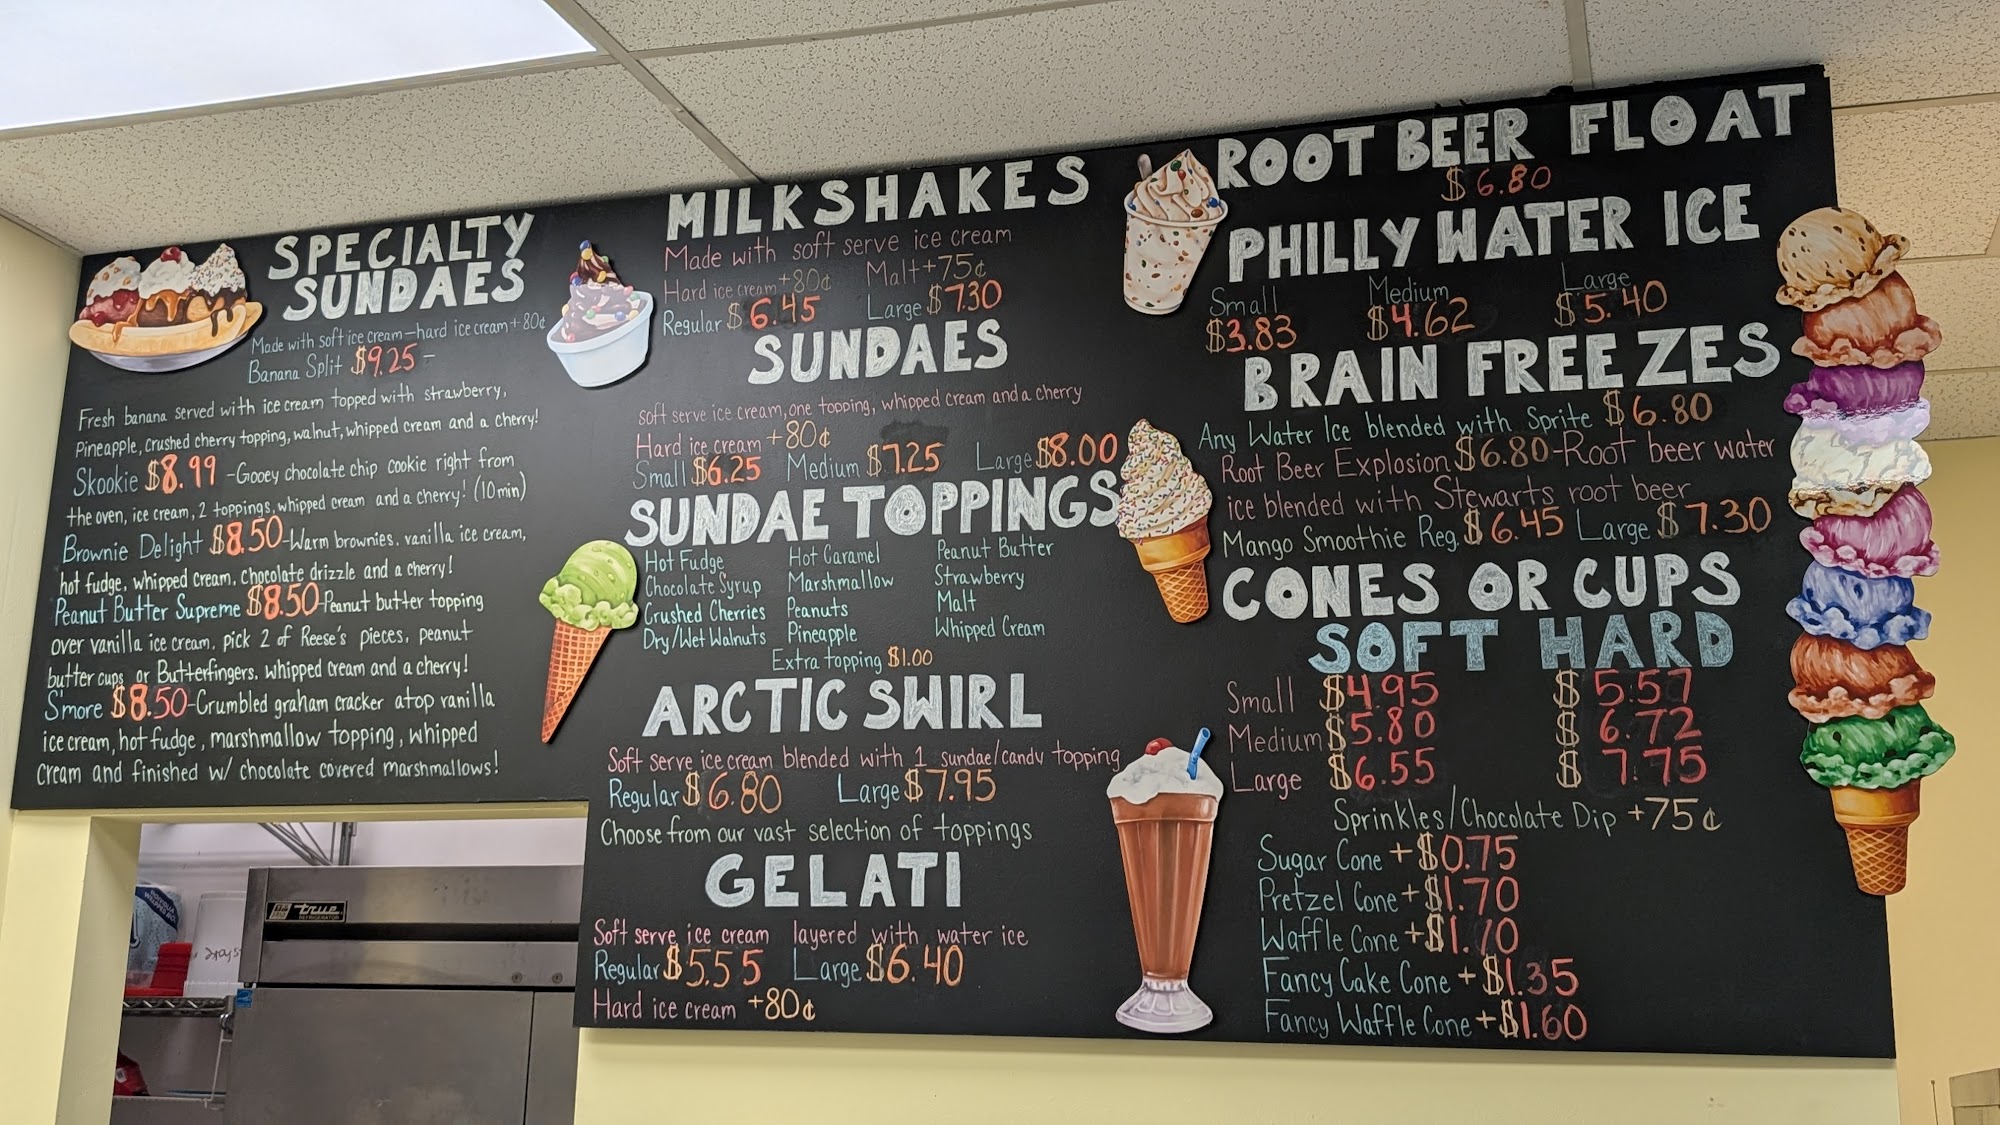 SPECIALTY
SUNDAES
Made with soft ice cream-hard ice cream +80¢
Banana Split $9.25 -
Fresh banana served with ice cream topped with strawberry,
Pineapple, crushed cherry topping, walnut, whipped cream and a cherry!
Skookie $8.99 -Gooey chocolate chip cookie right from
the oven, ice cream, 2 toppings, whipped cream and a cherry! (10min)
Brownie Delight $8.50-Warm brownies. vanilla ice cream,
hot fudge, whipped cream. Chocolate drizzle and a cherry!
Peanut Butter Supreme $8.50-Peanut butter topping
over vanilla ice cream, pick 2 of Reese's pieces, peanut
butter cups or Butterfingers. whipped cream and a cherry!
S'more $8.50-Crumbled graham cracker atop vanilla
ice cream, hot fudge, marshmallow topping, whipped
cream and finished w/ chocolate covered marshmallows!
MILKSHAKES
Made with soft serve ice cream
Hard ice cream +80¢ Malt +75¢
Regular $6.45 Large $7.30
SUNDAES
soft serve ice cream, one topping, whipped cream and a cherry
Hard ice cream +80¢
Small $6.25 Medium $7.25 Large $8.00
SUNDAE TOPPINGS
Hot Fudge Hot Caramel Peanut Butter
Chocolate Syrup Marshmallow Strawberry
Crushed Cherries Peanuts Malt
Dry/Wet Walnuts Pineapple Whipped Cream
Extra topping $1.00
ARCTIC SWIRL
Soft serve ice cream blended with 1 sundae/candy topping
Regular $6.80 Large $7.95
Choose from our vast selection of toppings
GELATI
Soft serve ice cream layered with water ice
Regular $5.55 Large $6.40
Hard ice cream +80¢
ROOT BEER FLOAT
$6.80
PHILLY WATER ICE
Small Medium Large
$3.83 $4.62 $5.40
BRAIN FREEZES
Any Water Ice blended with Sprite $6.80
Root Beer Explosion $6.80-Root beer water
ice blended with Stewarts root beer
Mango Smoothie Reg. $6.45 Large $7.30
CONES OR CUPS
SOFT HARD
Small $4.95 $5.57
Medium $5.80 $6.72
Large $6.55 $7.75
Sprinkles/Chocolate Dip +75¢
Sugar Cone +$0.75
Pretzel Cone +$1.70
Waffle Cone +$1.70
Fancy Cake Cone +$1.35
Fancy Waffle Cone +$1.60
true
REFRIGERATOR